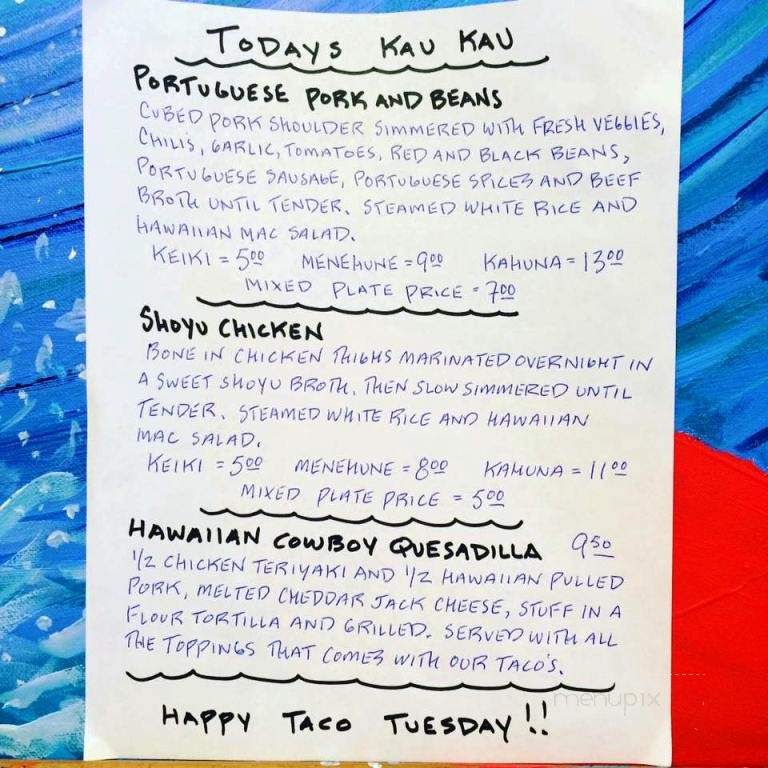 TODAYS KAU KAU
PORTUGUESE PORK AND BEANS
CUBED PORK SHOULDER SIMMERED WITH FRESH VEGGIES,
CHILI'S, GARLIC, TOMATOES, RED AND BLACK BEANS,
PORTUGUESE SAUSAGE, PORTUGUESE SPICES AND BEEF
BROTH UNTIL TENDER. STEAMED WHITE RICE AND
HAWAIIAN MAC SALAD.
KEIKI = 500 MENEHUNE = 900 KAHUNA = 1300
MIXED PLATE PRICE = 700
SHOYU CHICKEN
BONE IN CHICKEN THIGHS MARINATED OVERNIGHT IN
A SWEET SHOYU BROTH, THEN SLOW SIMMERED UNTIL
TENDER. STEAMED WHITE RICE AND HAWAIIAN
MAC SALAD.
KEIKI = 500 MENEHUNE = 800 KAHUNA = 1100
MIXED PLATE PRICE = 500
HAWAIIAN COWBOY QUESADILLA 950
1/2 CHICKEN TERIYAKI AND 1/2 HAWAIIAN PULLED
PORK, MELTED CHEDDAR JACK CHEESE, STUFF IN A
FLOUR TORTILLA AND GRILLED. SERVED WITH ALL
THE TOPPINGS THAT COMES WITH OUR TACO'S.
menupix
HAPPY TACO TUESDAY!!